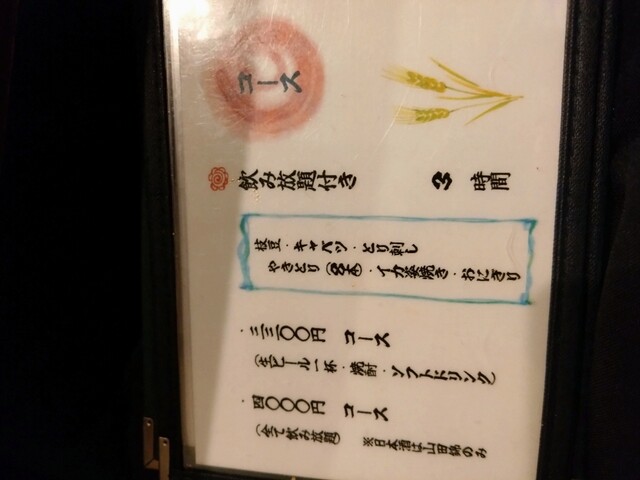 コース
飲み放題付き
2時間
枝豆・キャベツ・とり刺し
やきとり(8本)・イカ姿焼き・おにぎり
・三三〇〇円 コース
(生ビール一杯・焼酎・ソフトドリンク)
・四〇〇〇円 コース
(全て飲み放題) ※日本酒は山田錦のみ